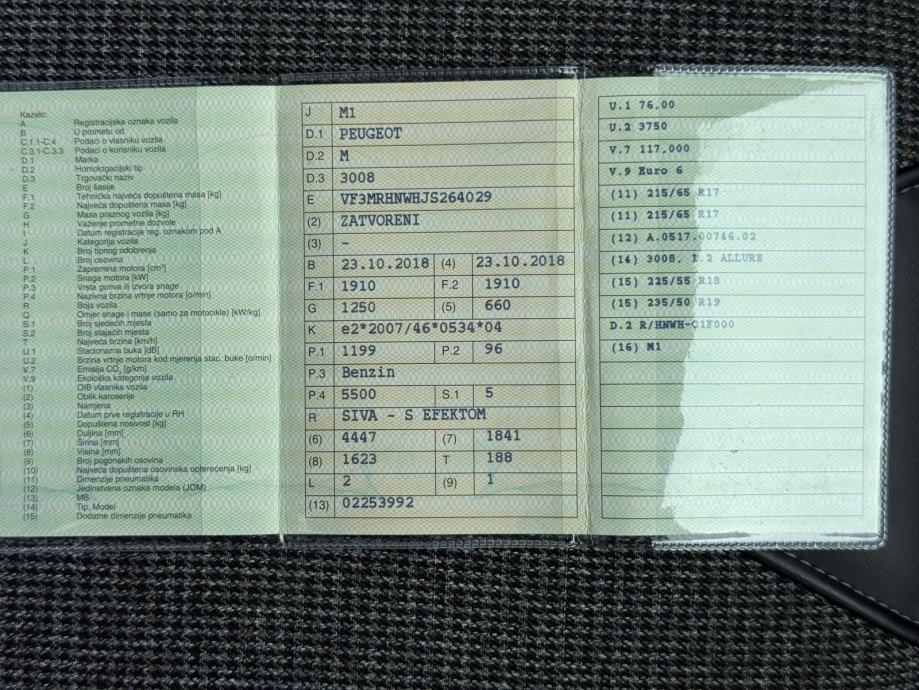 Kazalo:
A Registracijska oznaka vozila
B U prometu od
C.1.1-C.4 Podaci o vlasniku vozila
C.3.1-C.3.3 Podaci o korisniku vozila
D.1 Marka
D.2 Homologacijski tip
D.3 Trgovački naziv
E Broj šasije
F.1 Tehnička najveća dopuštena masa [kg]
F.2 Najveća dopuštena masa [kg]
G Masa praznog vozila [kg]
H Važenje prometne dozvole
I Datum registracije reg. oznakom pod A
J Kategorija vozila
K Broj tipnog odobrenja
L Broj osovina
P.1 Zapremina motora [cm³]
P.2 Snaga motora [kW]
P.3 Vrsta goriva ili izvora snage
P.4 Nazivna brzina vrtnje motora [o/min]
R Boja vozila
Q Omjer snage i mase (samo za motocikle) [kW/kg]
S.1 Broj sjedećih mjesta
S.2 Broj stajaćih mjesta
T Najveća brzina [km/h]
U.1 Stacionarna buka [dB]
U.2 Brzina vrtnje motora kod mjerenja stac. buke [o/min]
V.7 Emisija CO₂ [g/km]
V.9 Ekološka kategorija vozila
(1) OIB vlasnika vozila
(2) Oblik karoserije
(3) Namjena
(4) Datum prve registracije u RH
(5) Dopuštena nosivost [kg]
(6) Duljina [mm]
(7) Širina [mm]
(8) Visina [mm]
(9) Broj pogonskih osovina
(10) Najveća dopuštena osovinska opterećenja [kg]
(11) Dimenzije pneumatika
(12) Jedinstvena oznaka modela (JOM)
(13) MB
(14) Tip, Model
(15) Dodatne dimenzije pneumatika
J M1
D.1 PEUGEOT
D.2 M
D.3 3008
E VF3MRHNWHJS264029
(2) ZATVORENI
(3) –
B 23.10.2018 (4) 23.10.2018
F.1 1910 F.2 1910
G 1250 (5) 660
K e2*2007/46*0534*04
P.1 1199 P.2 96
P.3 Benzin
P.4 5500 S.1 5
R SIVA - S EFEKTOM
(6) 4447 (7) 1841
(8) 1623 T 188
L 2 (9) 1
(13) 02253992
U.1 76,00
U.2 3750
V.7 117,000
V.9 Euro 6
(11) 215/65 R17
(11) 215/65 R17
(12) A.0517.00746.02
(14) 3008, 1.2 ALLURE
(15) 225/55 R18
(15) 235/50 R19
D.2 R/HNWH-C1F000
(16) M1